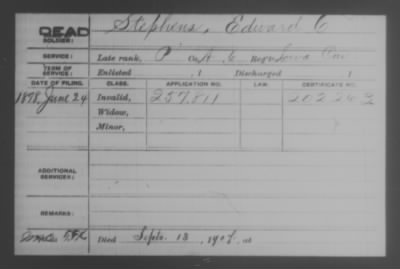 DEAD Stephens, Edward C
SOLDIER:
SERVICE: Late rank, P Co. Reg't Iowa Cav
TERM OF SERVICE: Enlisted , 1 Discharged 1
DATE OF FILING. CLASS. APPLICATION NO. LAW. CERTIFICATE NO.
1878, June 24 Invalid, 257.811
Widow,
Minor,
ADDITIONAL SERVICES:
REMARKS:
Died Septr. 13, at